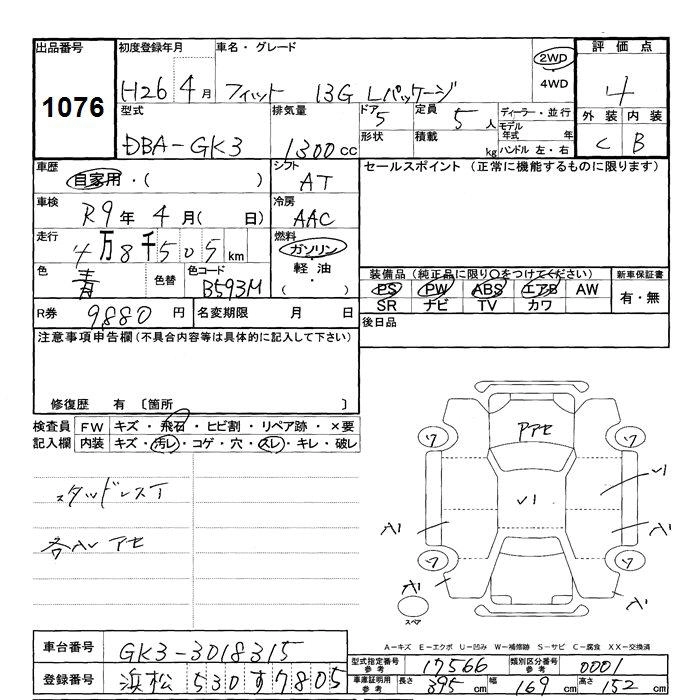 出品番号 初度登録年月 車名・グレード 2WD 評価点
1076 H26 4月 フィット 13G Lパッケージ 4WD 4
型式 排気量 ドア 定員 ディーラー・並行 外装 内装
DBA-GK3 1300cc 5 5人 モデル年式 年 C B
形状 積載 kg ハンドル 左・右
車歴 シフト セールスポイント (正常に機能するものに限ります)
自家用・( ) AT
車検 冷房
R9年 4月( 日) AAC
走行 燃料
4万8千505km ガソリン
色 色替 色コード 軽油
青 B593M ( ・ )
装備品(純正品に限り○をつけてください) 新車保証書
PS PW ABS エアB AW 有・無
SR ナビ TV カワ
R券 9880円 名変期限 月 日
後日品
注意事項申告欄(不具合内容等は具体的に記入して下さい)
修復歴 有 〔箇所 〕
検査員 FW キズ・飛石・ヒビ割・リペア跡・×要
記入欄 内装 キズ・汚レ・コゲ・穴・スレ・キレ・破レ
スタッドレスT
各AL アセ
アアセ
ワ ワ
V1 V1
A1 A1
ワ ワ
A1
スペア
A-キズ E-エクボ U-凹み W-補修跡 S-サビ C-腐食 XX-交換済
車台番号 GK3-3018315
型式指定番号 参考 17566 類別区分番号 参考 0001
登録番号 浜松 530 す7805
車庫証明用 参考 長さ 395cm 幅 169cm 高さ 152cm